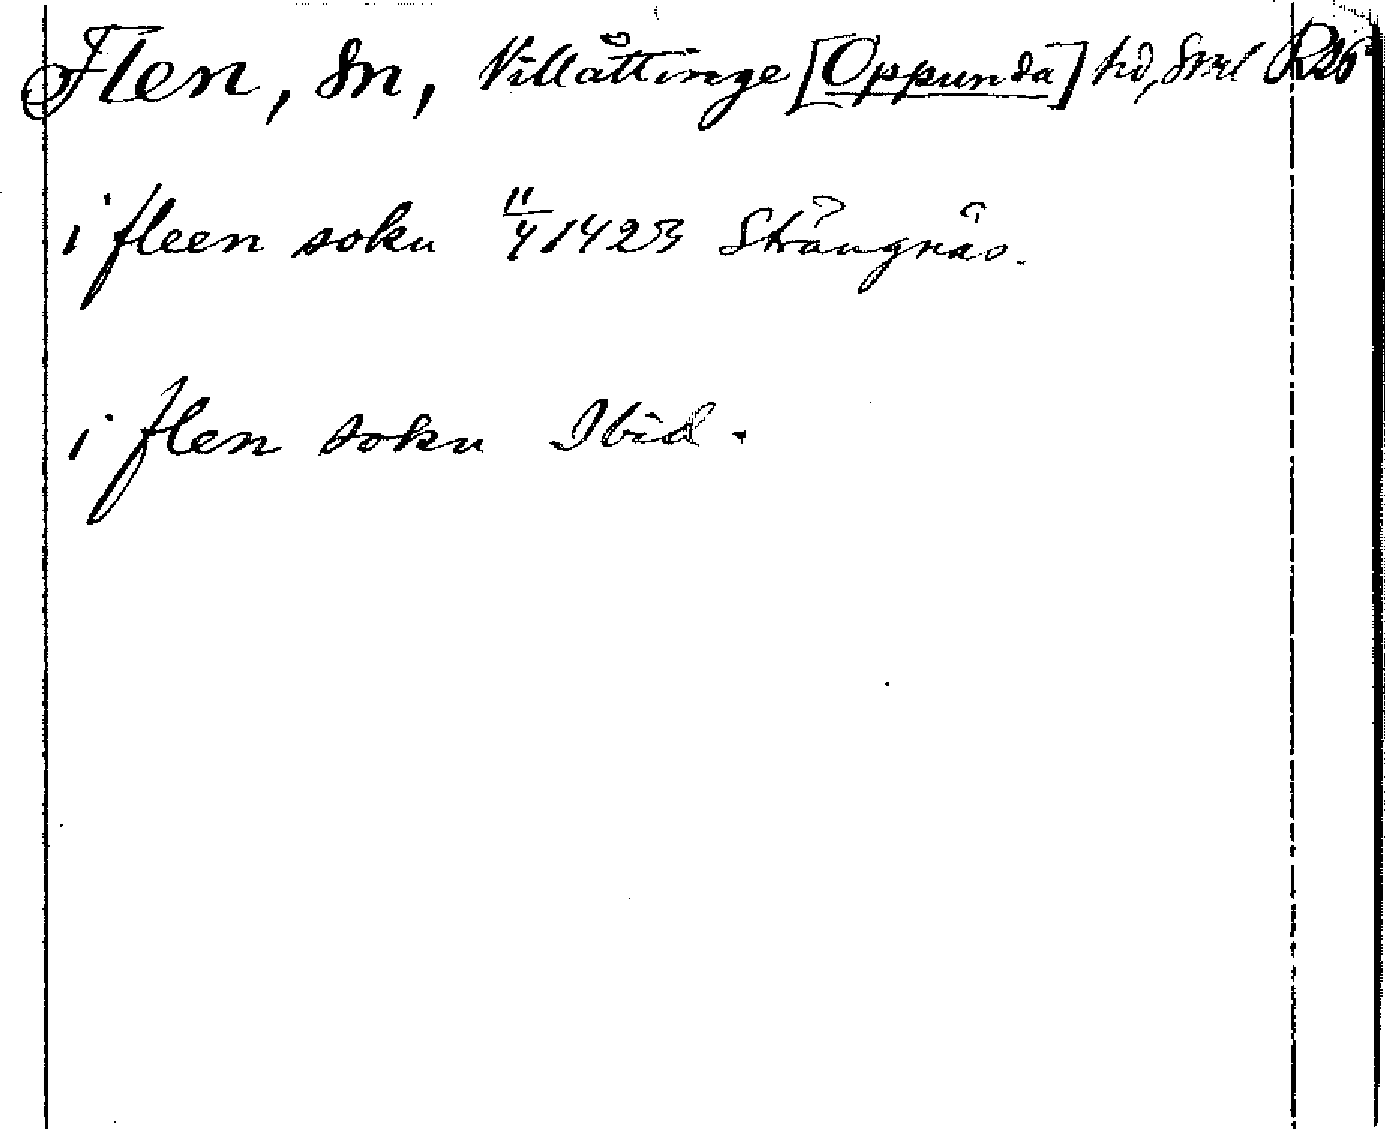 Flen, Sn, Villåttinge [Oppunda] hd, Srml
i fleen sokn 11/4 1423 Strängnäs.
i flen sokn Ibid.